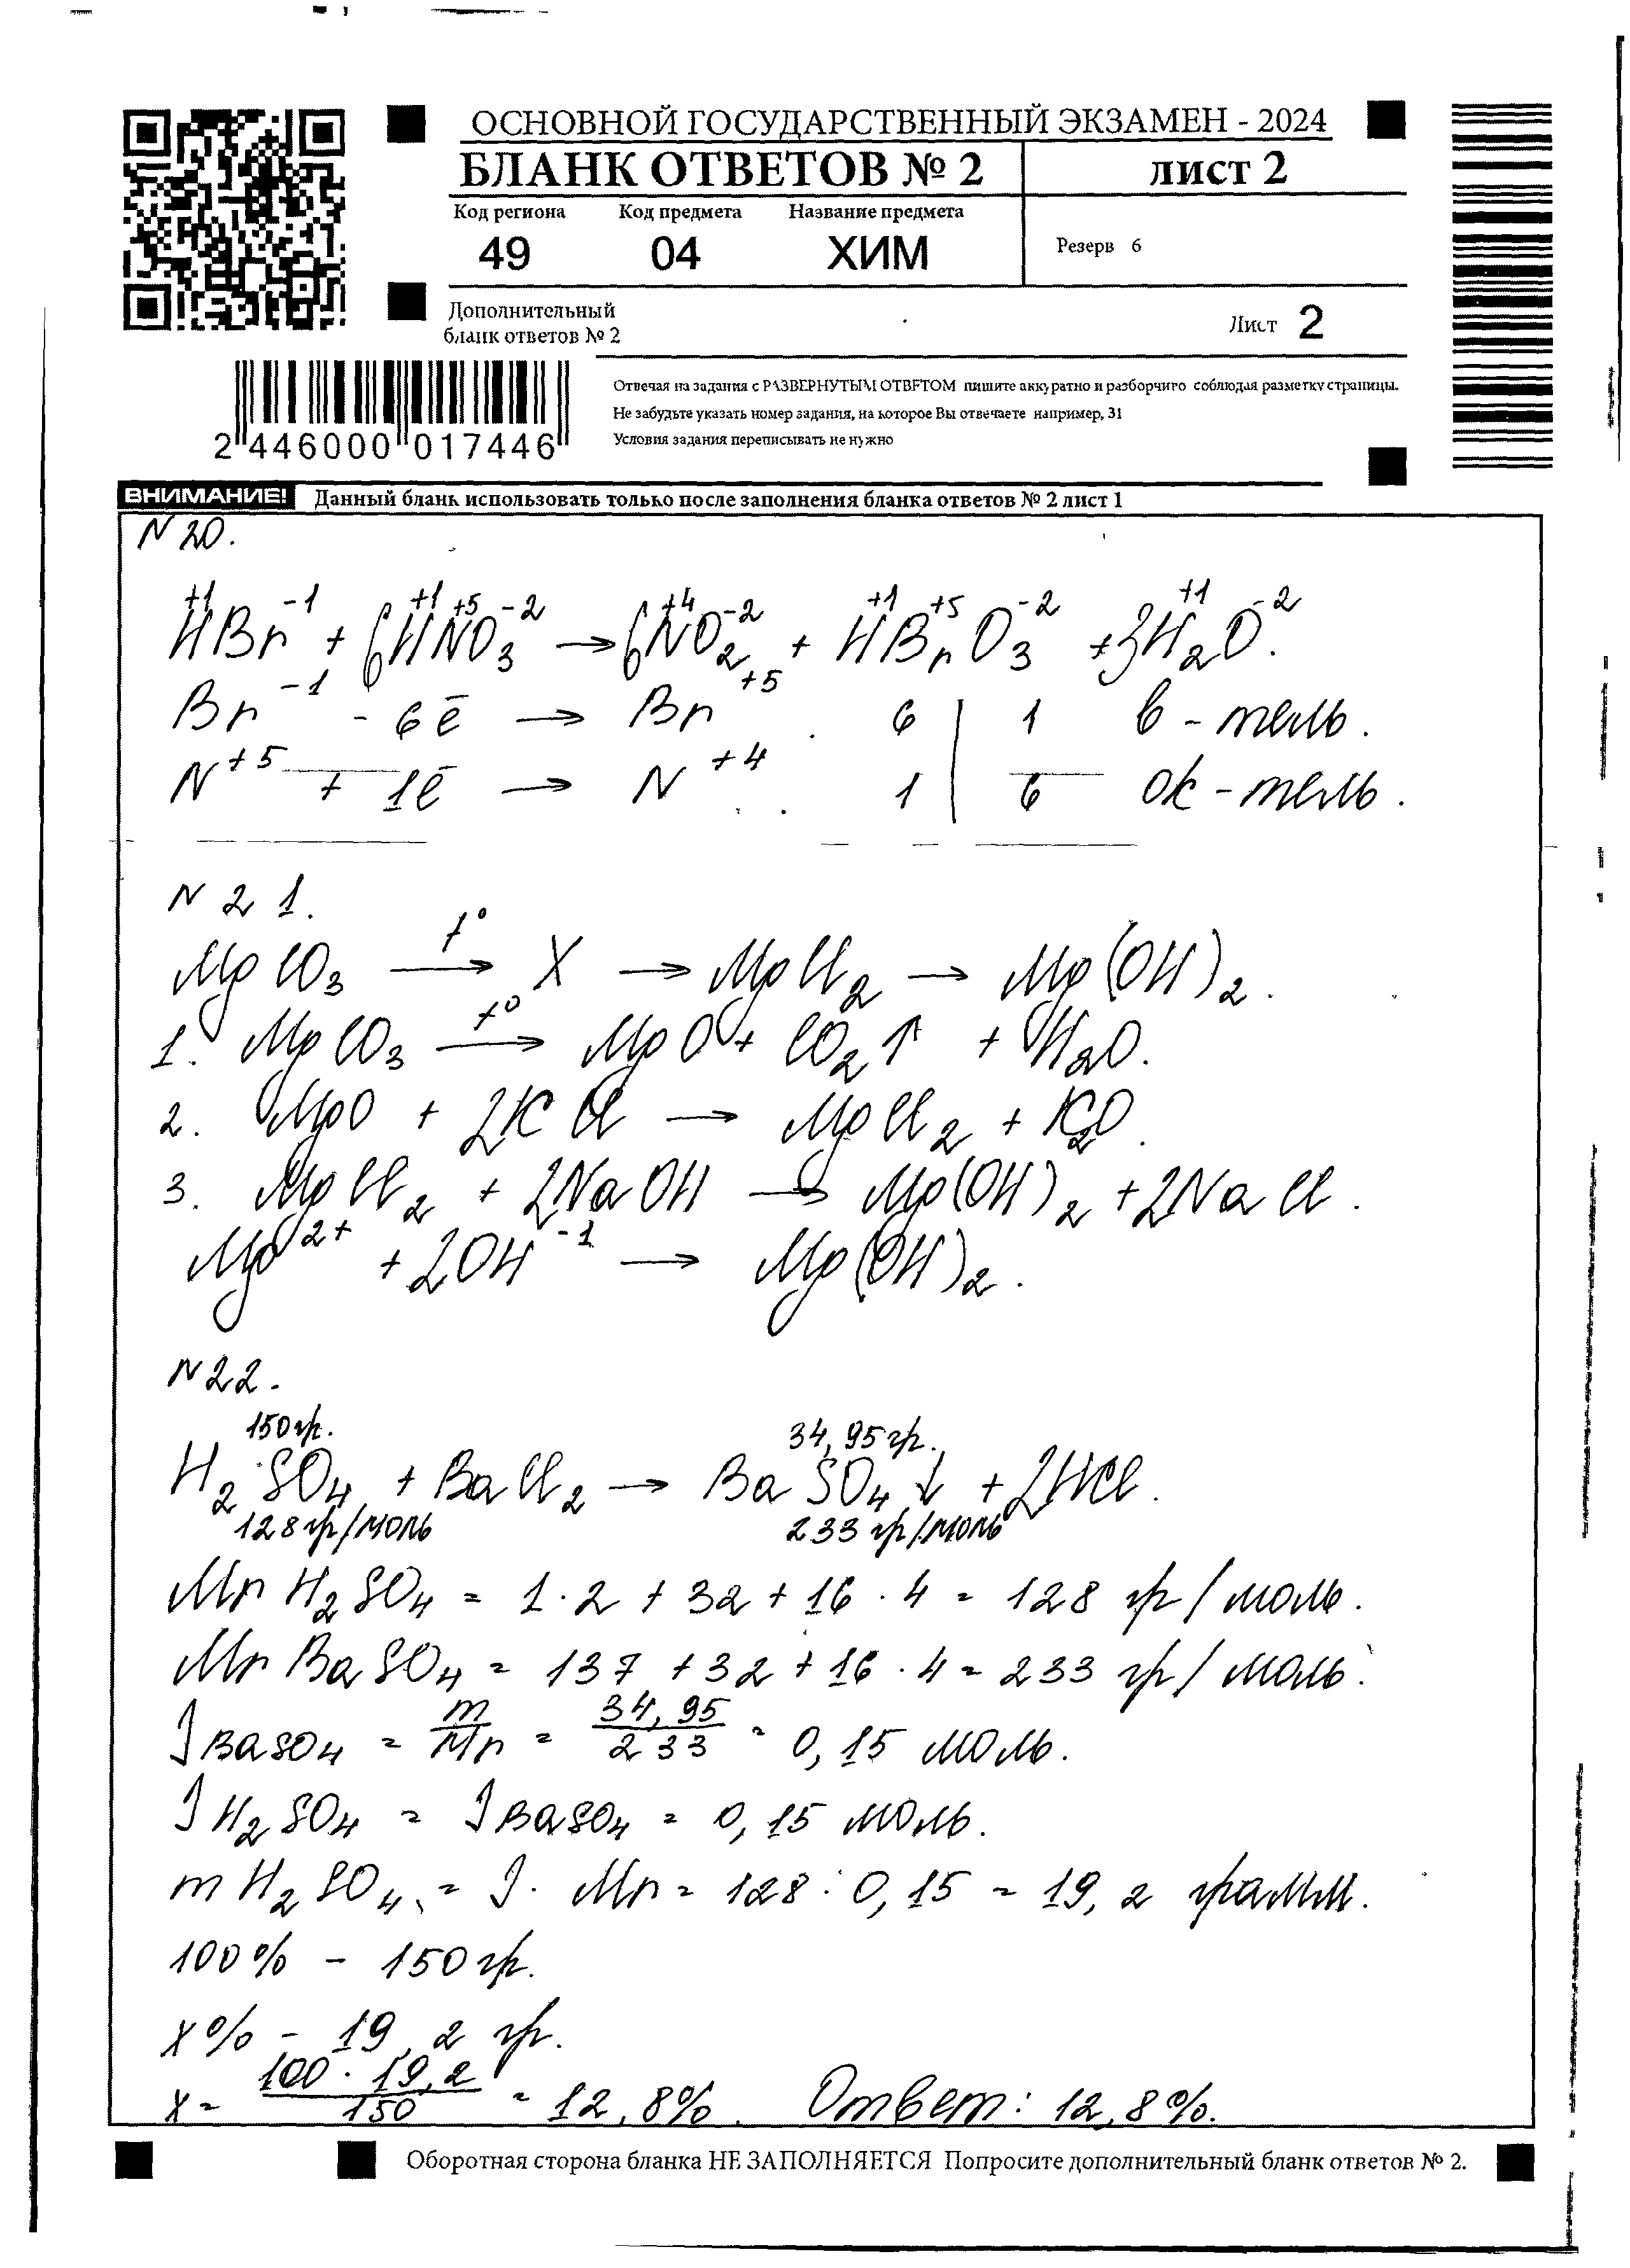 ОСНОВНОЙ ГОСУДАРСТВЕННЫЙ ЭКЗАМЕН - 2024
БЛАНК ОТВЕТОВ № 2 лист 2
Код региона Код предмета Название предмета
49 04 ХИМ
Резерв 6
Дополнительный
бланк ответов № 2
Лист 2
Отвечая на задания с РАЗВЕРНУТЫМ ОТВЕТОМ пишите аккуратно и разборчиво соблюдая разметку страницы.
Не забудьте указать номер задания, на которое Вы отвечаете например, 31
Условия задания переписывать не нужно
2 446000 017446
ВНИМАНИЕ! Данный бланк использовать только после заполнения бланка ответов № 2 лист 1
N 20.
+1 -1 +1 +5 -2 +4 -2 +1 +5 -2 +1 -2
HBr + 6HNO₃ → 6NO₂ + HBrO₃ + 3H₂O.
Br⁻¹ - 6ē → Br⁺⁵. 6 | 1 в-тель.
N⁺⁵ + 1ē → N⁺⁴. 1 | 6 ок-тель.
N 21.
MgCO₃ —t°→ X → MgCl₂ → Mg(OH)₂.
1. MgCO₃ —t°→ MgO + CO₂↑ + H₂O.
2. MgO + 2KCl → MgCl₂ + K₂O.
3. MgCl₂ + 2NaOH → Mg(OH)₂ + 2NaCl.
Mg²⁺ + 2OH⁻¹ → Mg(OH)₂.
N 22.
150гр. 34,95гр.
H₂SO₄ + BaCl₂ → BaSO₄↓ + 2HCl.
128гр/моль 233 гр/моль
Mr H₂SO₄ = 1·2 + 32 + 16·4 = 128 гр/моль.
Mr BaSO₄ = 137 + 32 + 16·4 = 233 гр/моль.
J BaSO₄ = m/Mr = 34,95/233 = 0,15 моль.
J H₂SO₄ = J BaSO₄ = 0,15 моль.
m H₂SO₄ = J · Mr = 128 · 0,15 = 19,2 грамм.
100% - 150гр.
x% - 19,2 гр.
x = 100 · 19,2/150 = 12,8%. Ответ: 12,8%.
Оборотная сторона бланка НЕ ЗАПОЛНЯЕТСЯ Попросите дополнительный бланк ответов № 2.